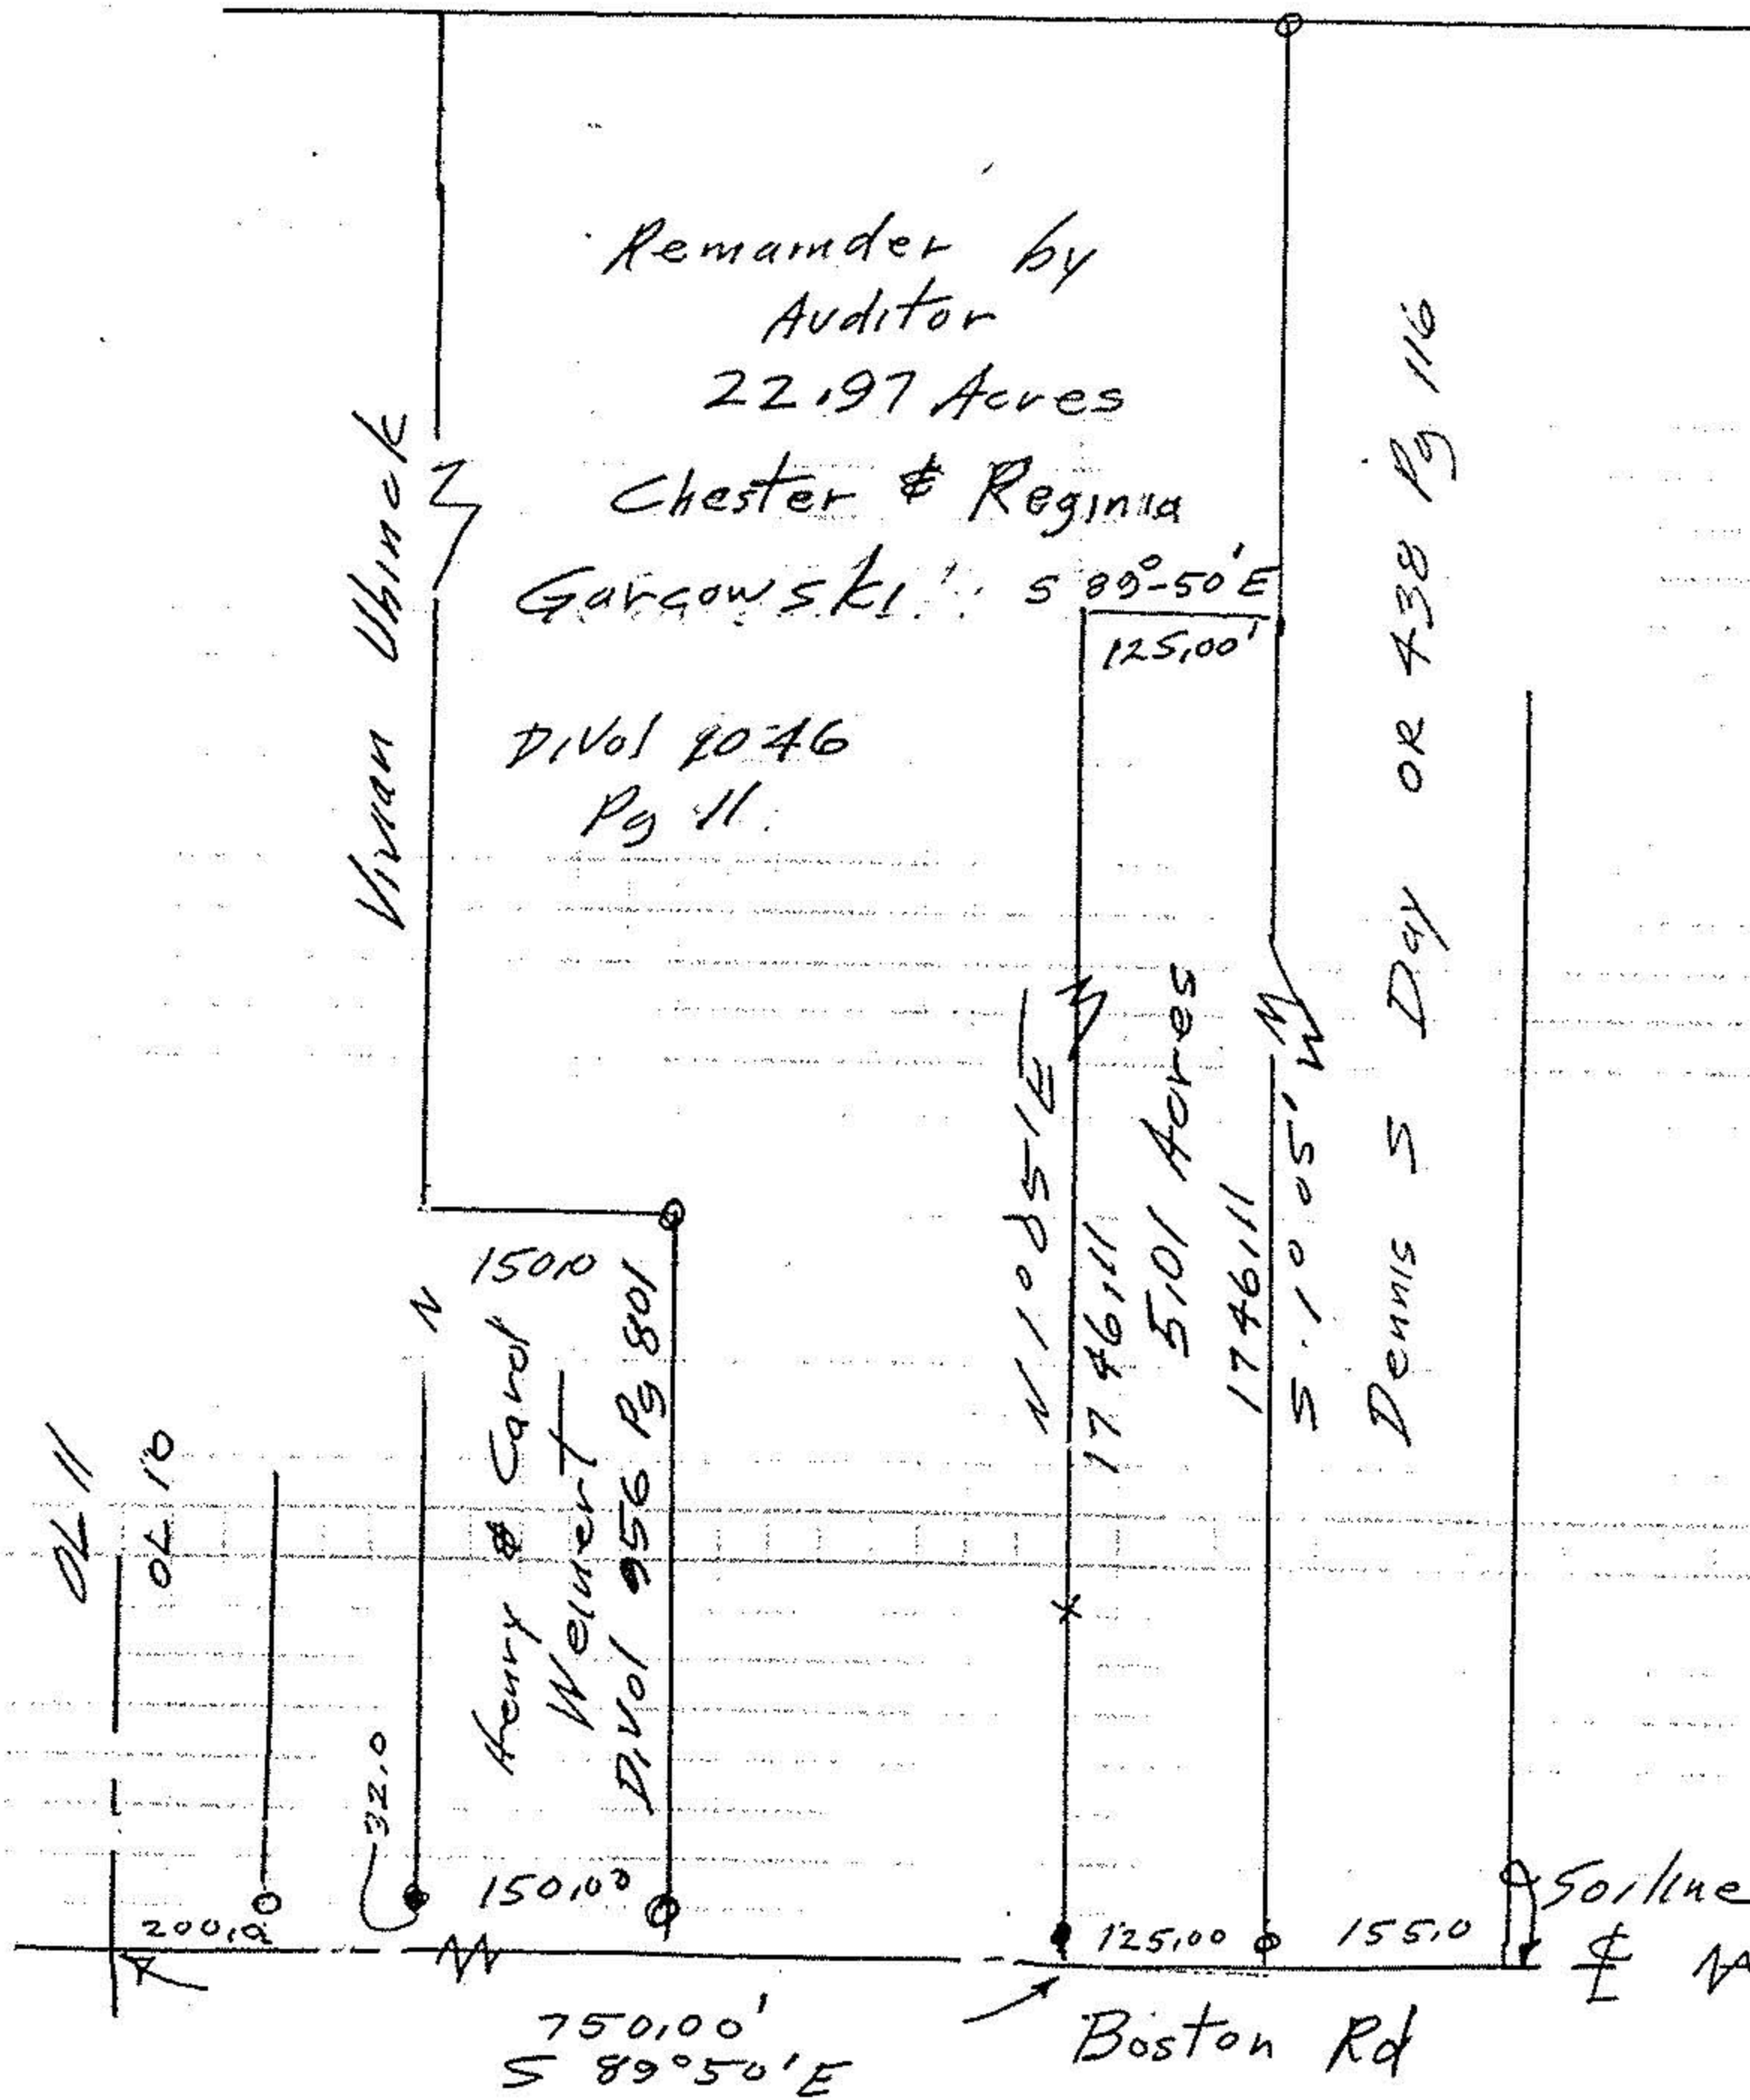 Remainder by
Auditor
22.97 Acres
Chester & Reginia
Garcowski
S 89°-50' E
125.00'
D.Vol 2046
Pg 11
Vivian Uhinck
Dennis S Day OR 438 Pg 116
N 1°05' E
1746.11
5.01 Acres
1746.11
S 1°05' W
150.0
N
Henry & Carol
Weinert
D.Vol 956 Pg 801
OL 11
OL 10
32.0
200.0
150.00
125.00
155.0
750.00'
S 89°50' E
Boston Rd